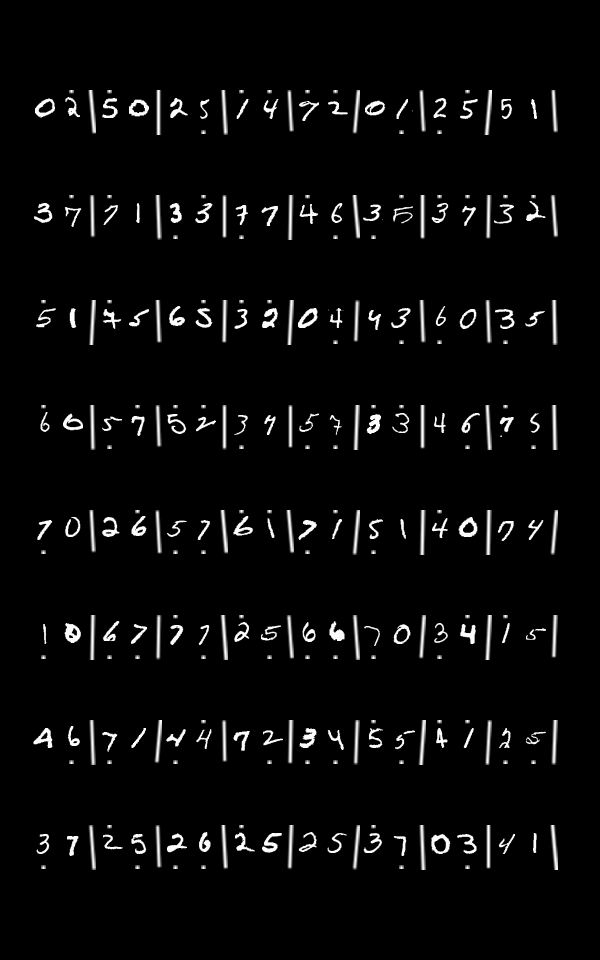 0 2 | 5 0 | 2 5 | 1 4 | 7 2 | 0 1 | 2 5 | 5 1 |
3 7 | 7 1 | 3 3 | 7 7 | 4 6 | 3 5 | 3 7 | 3 2 |
5 1 | 7 5 | 6 5 | 3 2 | 0 4 | 4 3 | 6 0 | 3 5 |
6 0 | 5 7 | 5 2 | 3 4 | 5 7 | 3 3 | 4 6 | 7 5 |
7 0 | 2 6 | 5 7 | 6 1 | 7 1 | 5 1 | 4 0 | 7 4 |
1 0 | 6 7 | 7 7 | 2 5 | 6 6 | 7 0 | 3 4 | 1 5 |
4 6 | 7 1 | 4 4 | 7 2 | 3 4 | 5 5 | 4 1 | 2 5 |
3 7 | 2 5 | 2 6 | 2 5 | 2 5 | 3 7 | 0 3 | 4 1 |